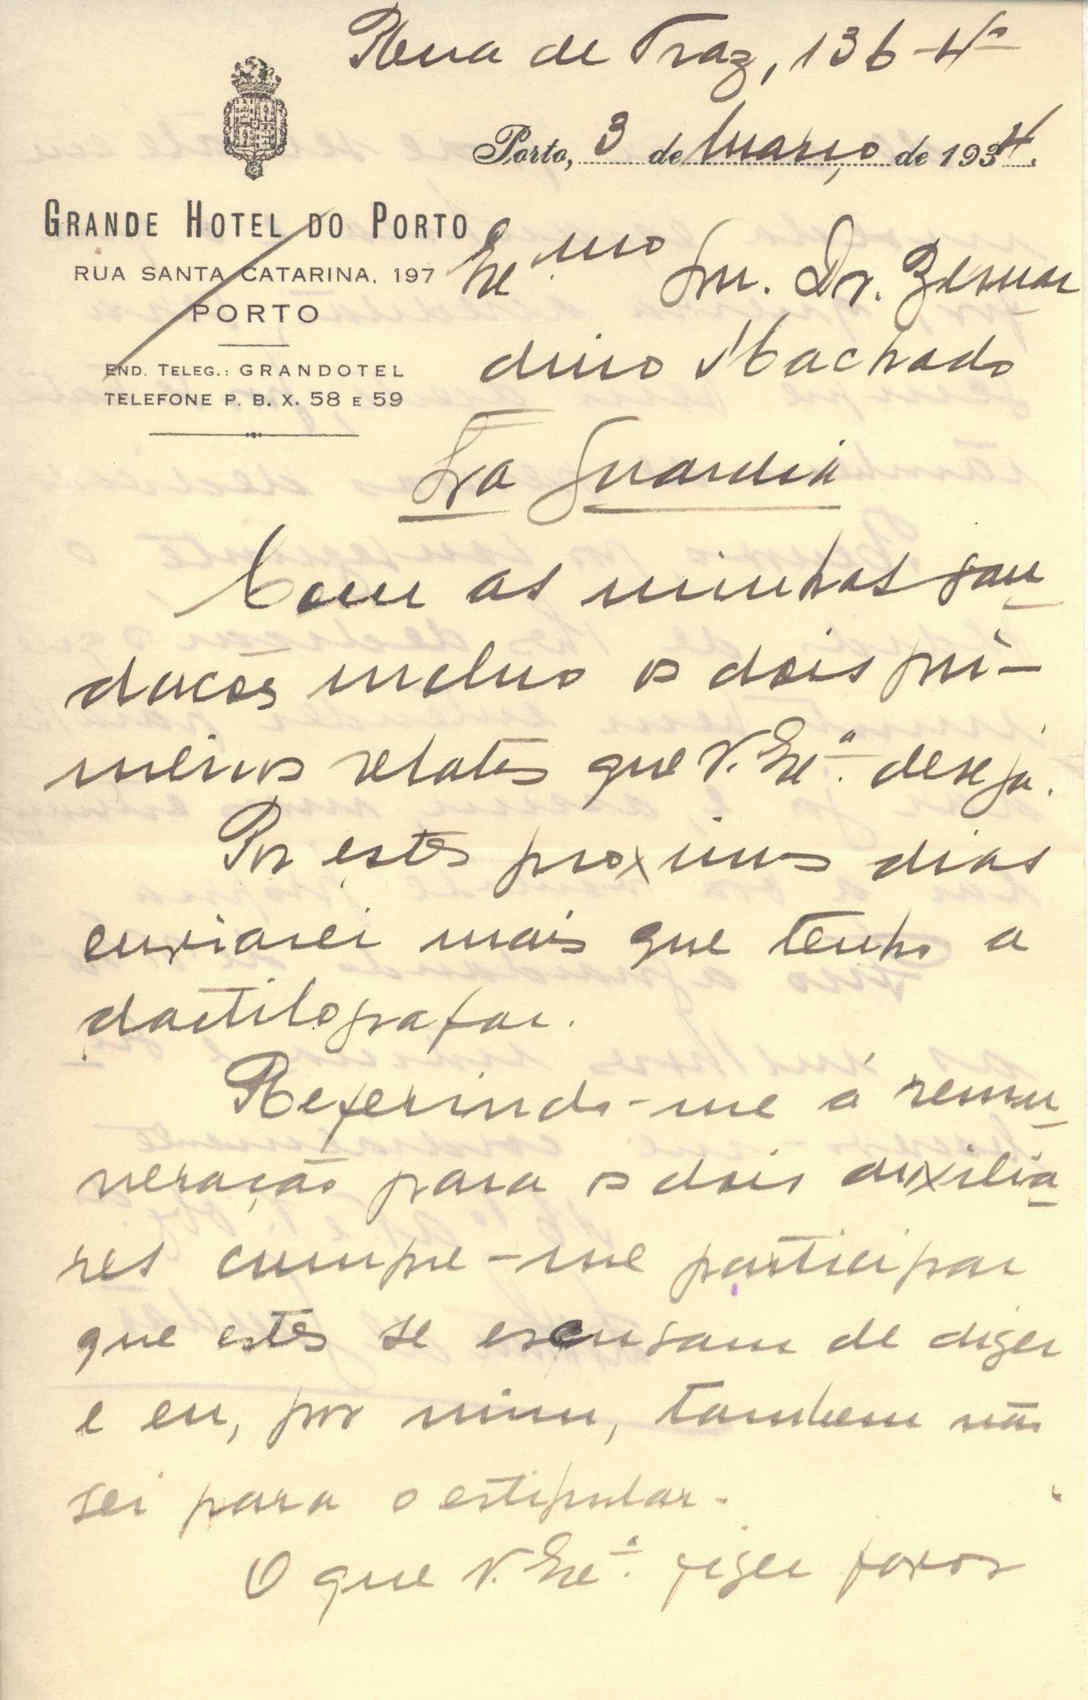 Rua de Traz, 136-4º
Porto, 3 de Março de 1934.
GRANDE HOTEL DO PORTO
RUA SANTA CATARINA, 197
PORTO
END. TELEG.: GRANDOTEL
TELEFONE P. B. X. 58 E 59
Exmo Snr. Dr. Bernar
dino Machado
La Guardia
Com as minhas sau
dacões incluo os dois pri-
meiros relatos que V. Exª. deseja.
Por estes proximos dias
enviarei mais que tenho a
dactilografar.
Referindo-me á remu
neração para os dois auxilia
res cumpre-me participar
que estes se escusam de dizer
e eu, por mim, tambem não
sei para o estipular.
O que V. Exª. fizer